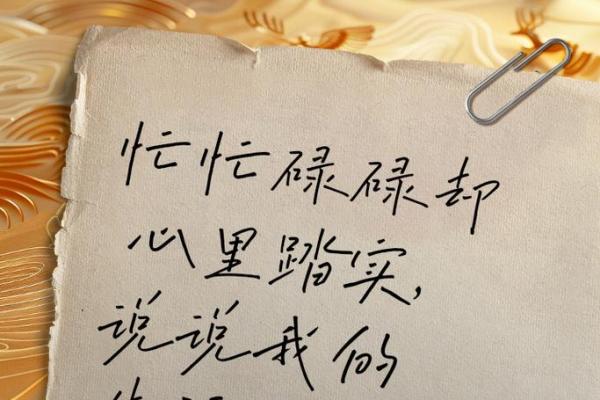 忙忙碌碌却
心里踏实,
说说我的